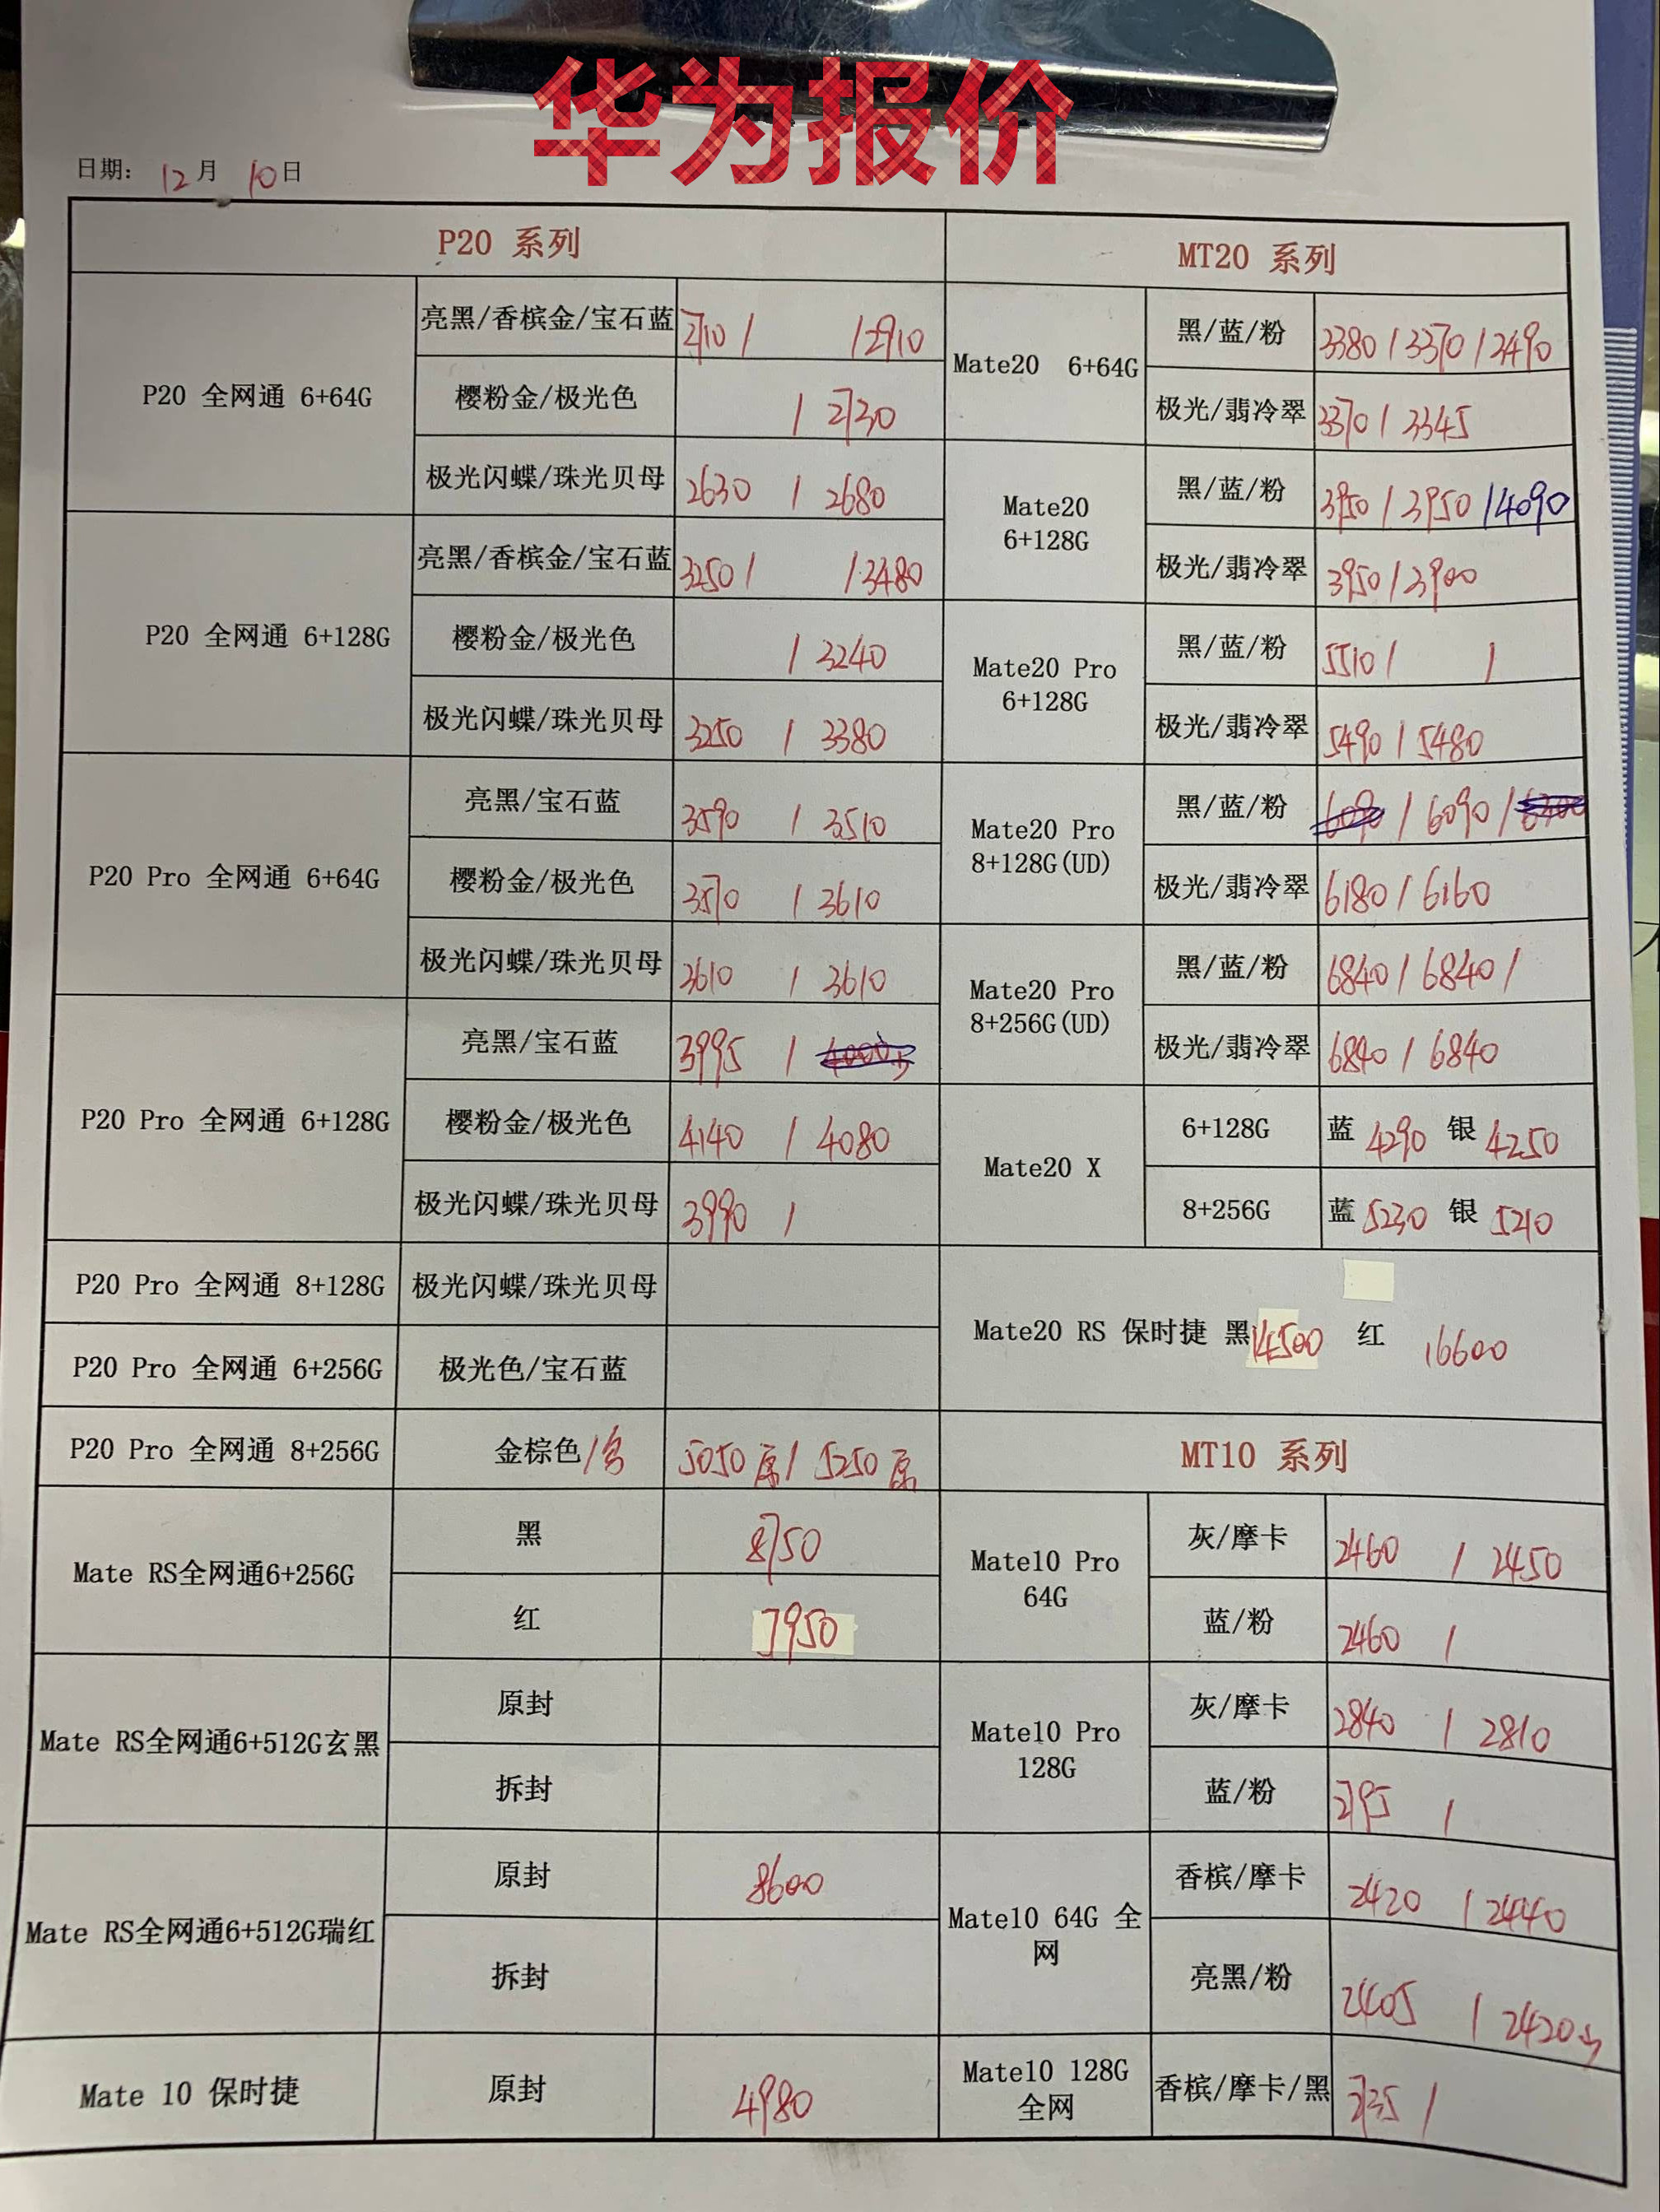 华为报价
日期: 12月 10日
P20 系列
P20 全网通 6+64G
亮黑/香槟金/宝石蓝 2710 / / 2910
樱粉金/极光色 / 2730
极光闪蝶/珠光贝母 2630 / 2680
P20 全网通 6+128G
亮黑/香槟金/宝石蓝 3250 / / 3480
樱粉金/极光色 / 3240
极光闪蝶/珠光贝母 3250 / 3380
P20 Pro 全网通 6+64G
亮黑/宝石蓝 3590 / 3510
樱粉金/极光色 3570 / 3610
极光闪蝶/珠光贝母 3610 / 3610
P20 Pro 全网通 6+128G
亮黑/宝石蓝 3995 /
樱粉金/极光色 4140 / 4080
极光闪蝶/珠光贝母 3990 /
P20 Pro 全网通 8+128G 极光闪蝶/珠光贝母
P20 Pro 全网通 6+256G 极光色/宝石蓝
P20 Pro 全网通 8+256G 金棕色/ 5050原 / 5250原
Mate RS全网通6+256G
黑 8750
红 7950
Mate RS全网通6+512G玄黑
原封
拆封
Mate RS全网通6+512G瑞红
原封 8600
拆封
Mate 10 保时捷 原封 4980
MT20 系列
Mate20 6+64G
黑/蓝/粉 3380 / 3370 / 3490
极光/翡冷翠 3370 / 3345
Mate20
6+128G
黑/蓝/粉 3950 / 3950 / 4090
极光/翡冷翠 3950 / 3900
Mate20 Pro
6+128G
黑/蓝/粉 5510 / /
极光/翡冷翠 5490 / 5480
Mate20 Pro
8+128G(UD)
黑/蓝/粉 / 6090 /
极光/翡冷翠 6180 / 6160
Mate20 Pro
8+256G(UD)
黑/蓝/粉 6840 / 6840 /
极光/翡冷翠 6840 / 6840
Mate20 X
6+128G 蓝 4290 银 4250
8+256G 蓝 5230 银 5210
Mate20 RS 保时捷 黑 14500 红 16600
MT10 系列
Mate10 Pro
64G
灰/摩卡 2460 / 2450
蓝/粉 2460 /
Mate10 Pro
128G
灰/摩卡 2840 / 2810
蓝/粉 2795 /
Mate10 64G 全
网
香槟/摩卡 2420 / 2440
亮黑/粉 2405 / 2420
Mate10 128G
全网
香槟/摩卡/黑 2735 /